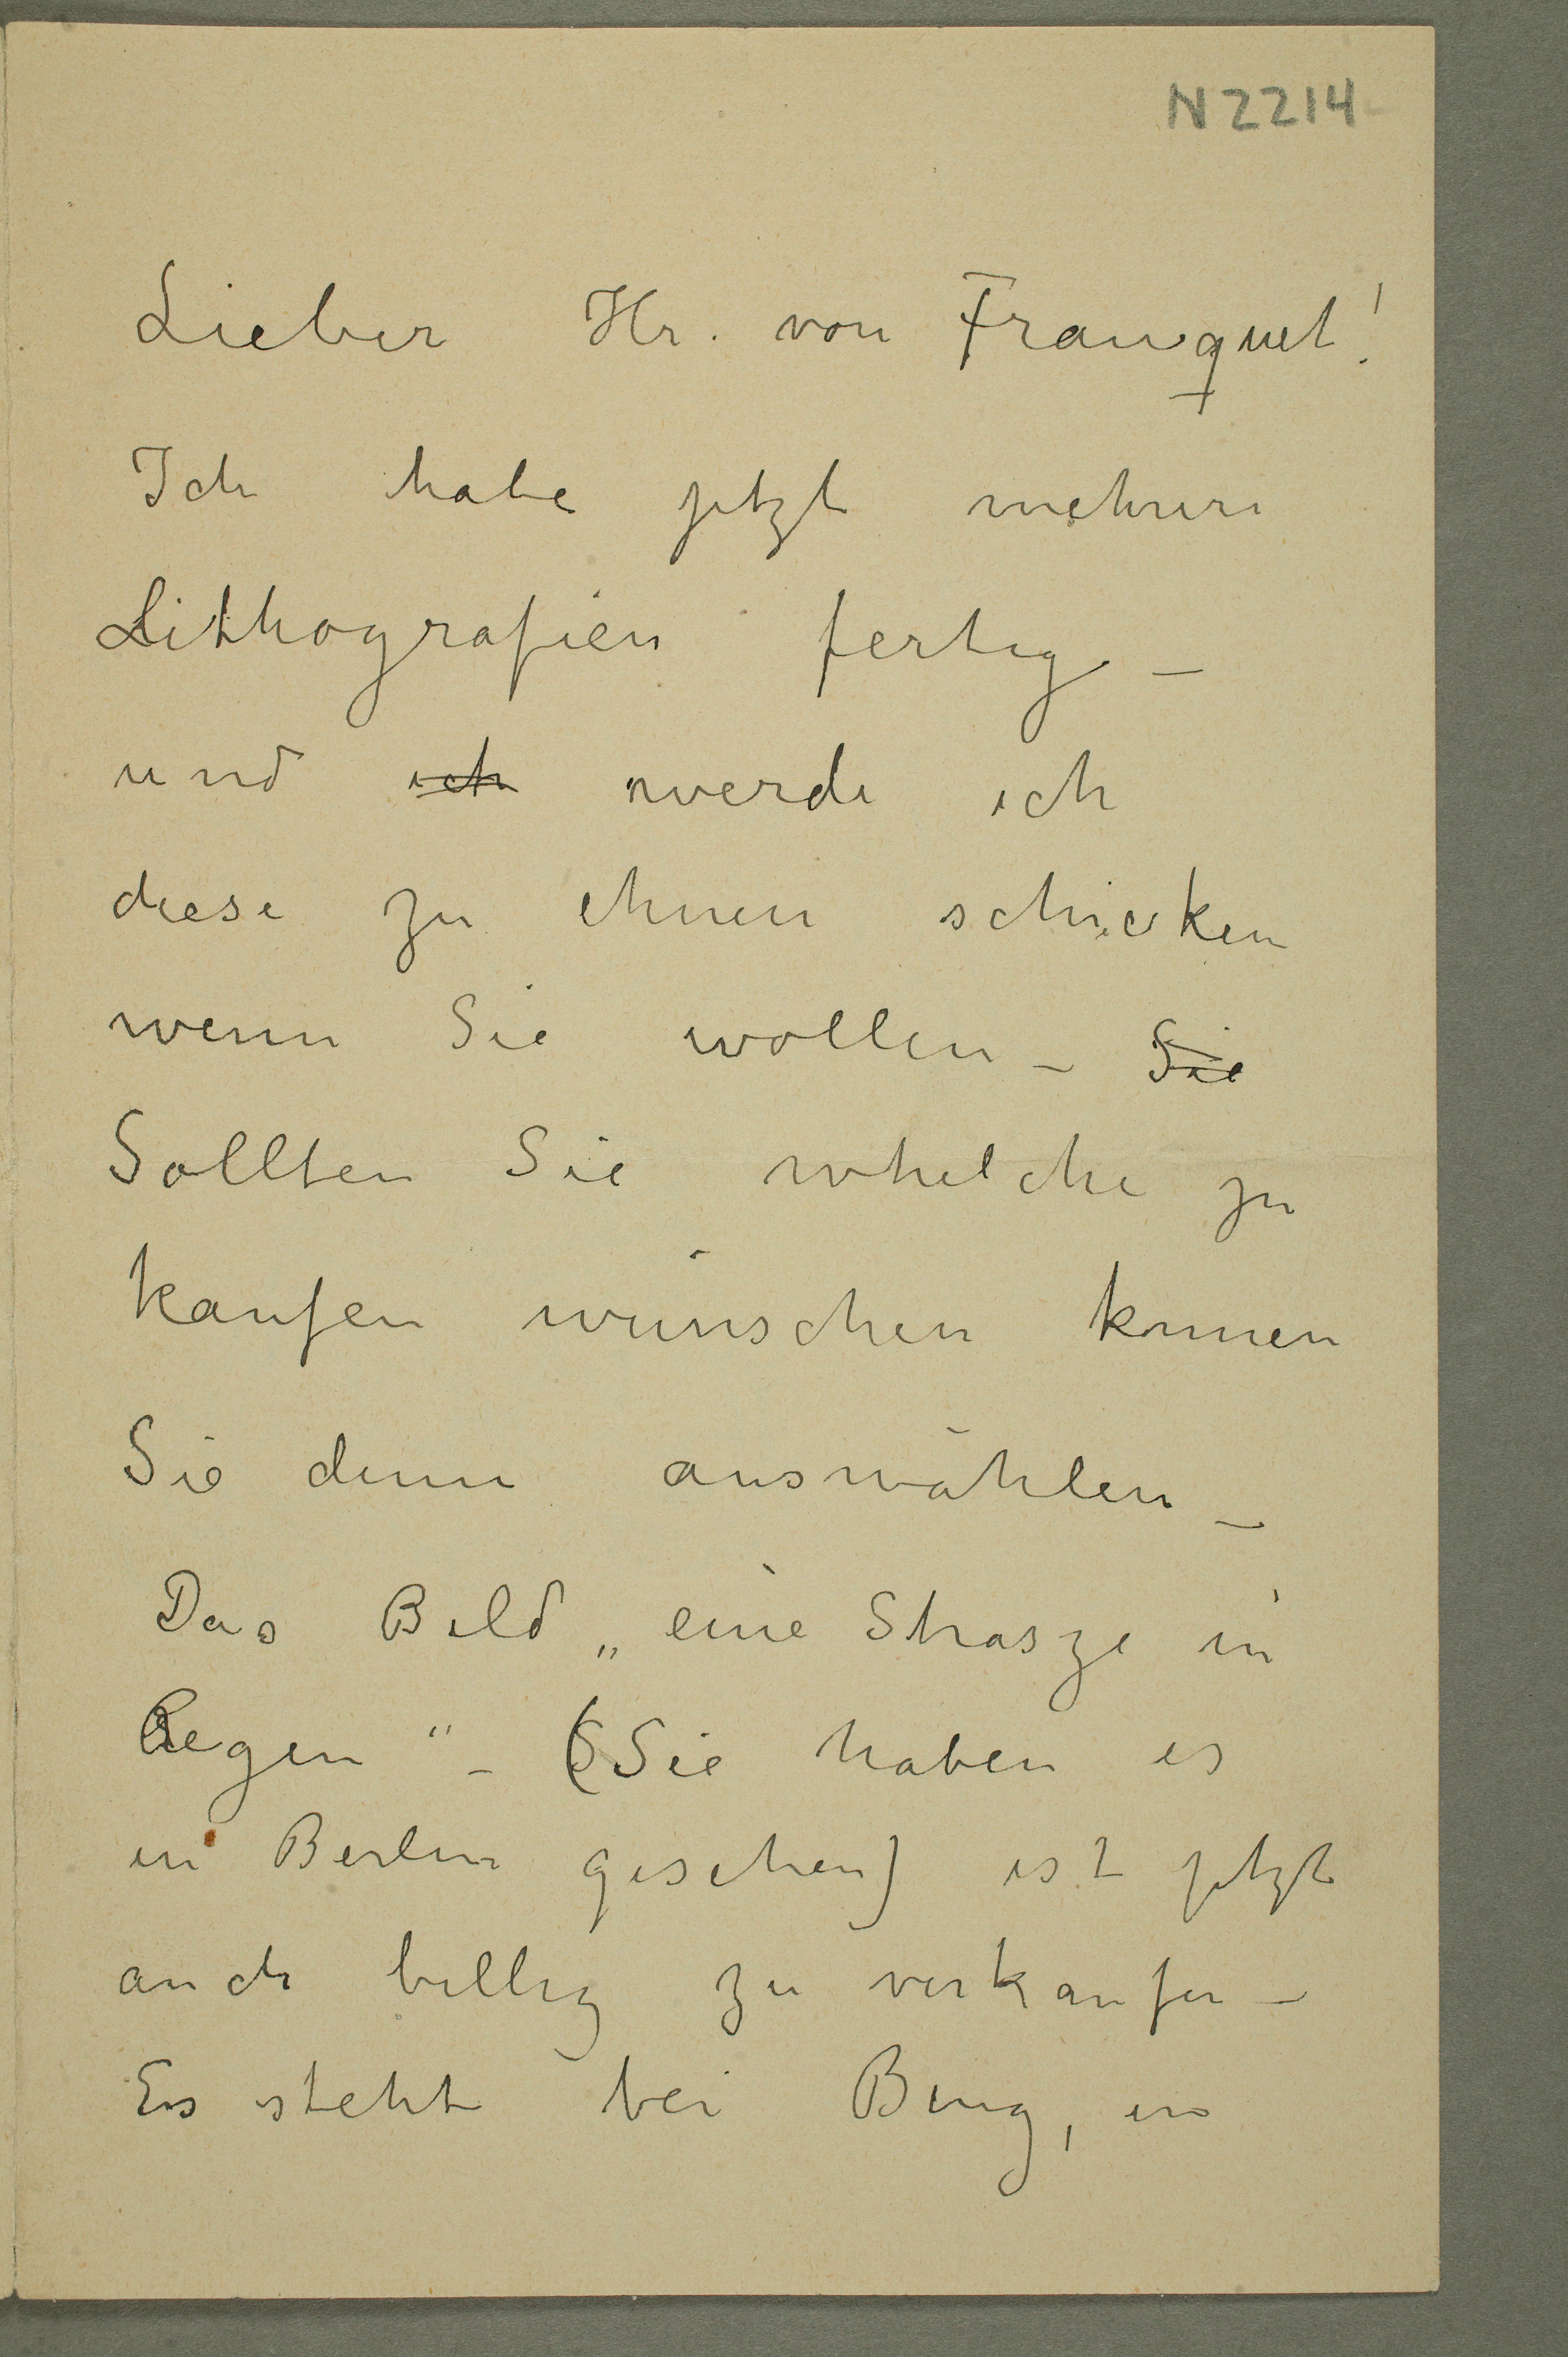 N 2214
Lieber Hr. von Franquet!
Ich habe jetzt mehrere
Lithografien fertig –
und ich werde ich
diese zu ihnen schicken
wenn Sie wollen – Sie
Sollten Sie whelche zu
kaufen wünschen können
Sie denn auswählen –
Das Bild „eine Strasze in
Regen“ – (Sie haben es
in Berlin gesehen) ist jetzt
auch billig zu verkaufen –
Es steht bei Bing, in